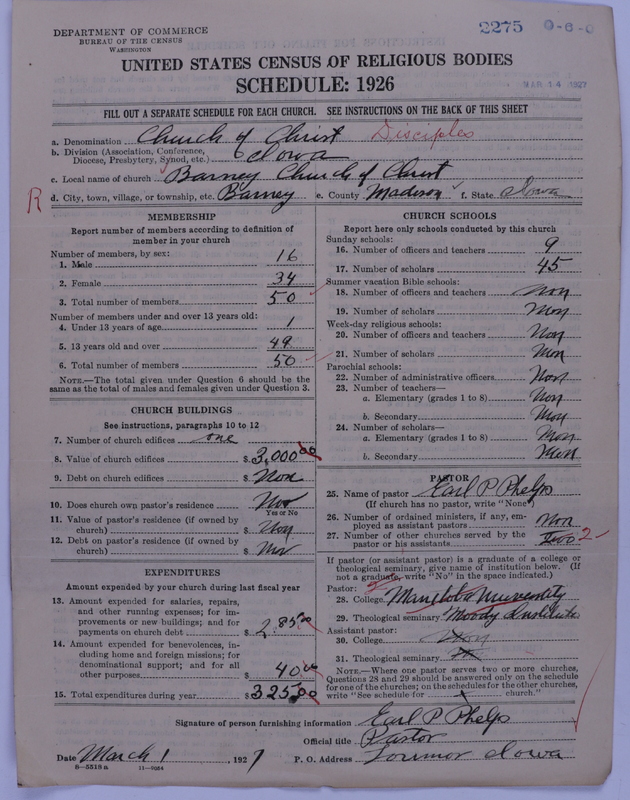 DEPARTMENT OF COMMERCE
BUREAU OF THE CENSUS
WASHINGTON
2275 0-6-0
MAR 14 1927
UNITED STATES CENSUS OF RELIGIOUS BODIES
SCHEDULE: 1926
FILL OUT A SEPARATE SCHEDULE FOR EACH CHURCH. SEE INSTRUCTIONS ON THE BACK OF THIS SHEET
a. Denomination Church of Christ Disciples
b. Division (Association, Conference, Diocese, Presbytery, Synod, etc.) Iowa
c. Local name of church Barney Church of Christ
R
d. City, town, village, or township, etc. Barney e. County Madison f. State Iowa
MEMBERSHIP
Report number of members according to definition of
member in your church
Number of members, by sex:
1. Male 16
2. Female 34
3. Total number of members 50
Number of members under and over 13 years old:
4. Under 13 years of age 1
5. 13 years old and over 49
6. Total number of members 50
NOTE.—The total given under Question 6 should be
same as the total of males and females given under Question 3.
CHURCH BUILDINGS
See instructions, paragraphs 10 to 12
7. Number of church edifices one
8. Value of church edifices $ 3,000 00
9. Debt on church edifices $ Non
10. Does church own pastor's residence No
Yes or No
11. Value of pastor's residence (if owned by
church) $ Non
12. Debt on pastor's residence (if owned by
church) $ No
EXPENDITURES
Amount expended by your church during last fiscal year
13. Amount expended for salaries, repairs,
and other running expenses; for im-
provements or new buildings; and for
payments on church debt $ 285.00
14. Amount expended for benevolences, in-
cluding home and foreign missions; for
denominational support; and for all
other purposes $ 40.00
15. Total expenditures during year $ 325.00
CHURCH SCHOOLS
Report here only schools conducted by this church
Sunday schools:
16. Number of officers and teachers 9
17. Number of scholars 45
Summer vacation Bible schools:
18. Number of officers and teachers Non
19. Number of scholars Non
Week-day religious schools:
20. Number of officers and teachers Non
21. Number of scholars Non
Parochial schools:
22. Number of administrative officers Non
23. Number of teachers—
a. Elementary (grades 1 to 8) Non
b. Secondary Non
24. Number of scholars—
a. Elementary (grades 1 to 8) Non
b. Secondary Non
PASTOR
25. Name of pastor Earl P Phelps
(If church has no pastor, write "None")
26. Number of ordained ministers, if any, em-
ployed as assistant pastors Non
27. Number of other churches served by the
pastor or his assistants Two 2
If pastor (or assistant pastor) is a graduate of a college or
theological seminary, give name of institution below. (If
not a graduate, write "No" in the space indicated.)
Pastor:
28. College Manitoba University
29. Theological seminary Moody Institute
Assistant pastor:
30. College Non
31. Theological seminary
NOTE.—Where one pastor serves two or more churches,
Questions 28 and 29 should be answered only on the schedule
for one of the churches; on the schedules for the other churches,
write "See schedule for church."
Signature of person furnishing information Earl P Phelps
Official title Pastor
Date March 1, 1927 P. O. Address Lorimor Iowa
8-5518a 11-9264